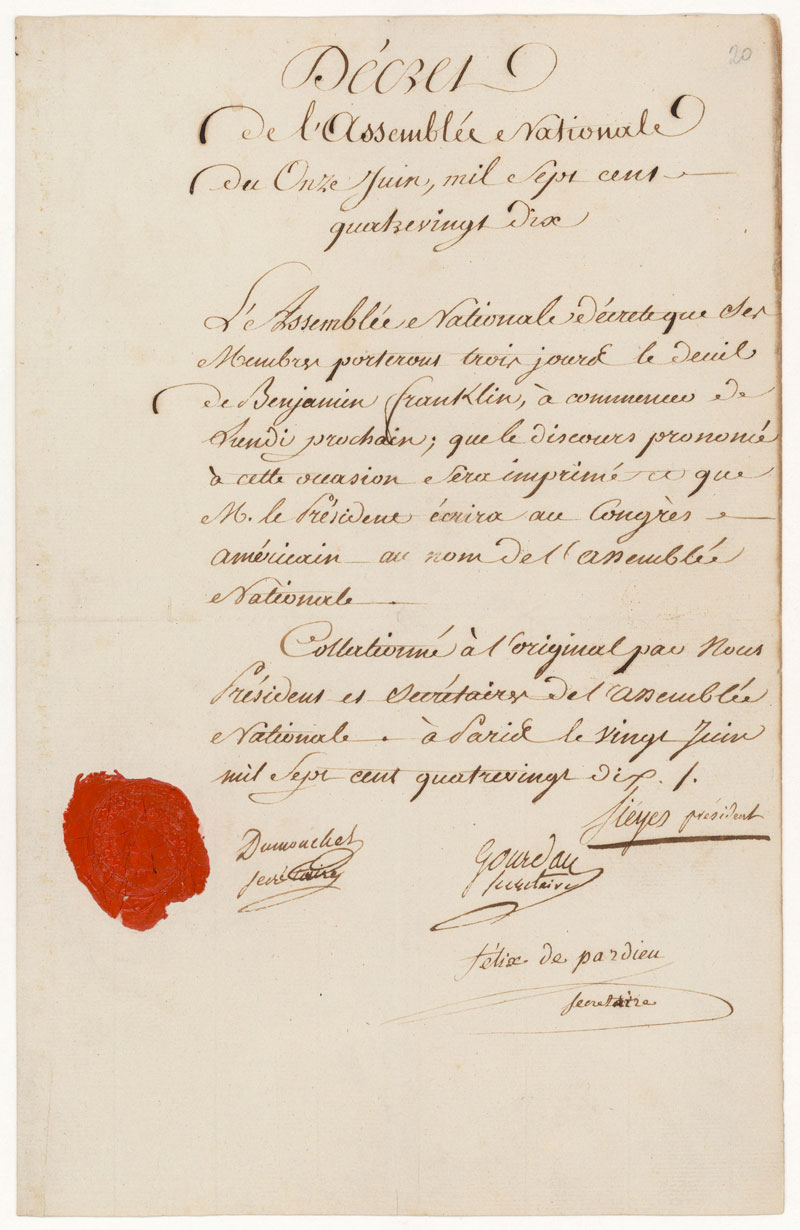 20
Décret
de l'Assemblée Nationale
du Onze Juin, mil Sept cent
quatrevingt dix
L'Assemblée Nationale décrete que Ses
Membres porteront trois jours le deuil
de Benjamin franklin, à commencer de
Lundi prochain; que le discours prononcé
à cette occasion Sera imprimé et que
M. le Président écrira au Congrès
américain au nom de l'assemblée
Nationale.
Collationné à l'original par Nous
Président et Secrétaires de l'assemblée
Nationale. à Paris le vingt Juin
mil Sept cent quatrevingt dix. /.
Siéyes président
Dumouchet
secrétaire
Gourdan
secretaire
félix de pardieu
secretaire